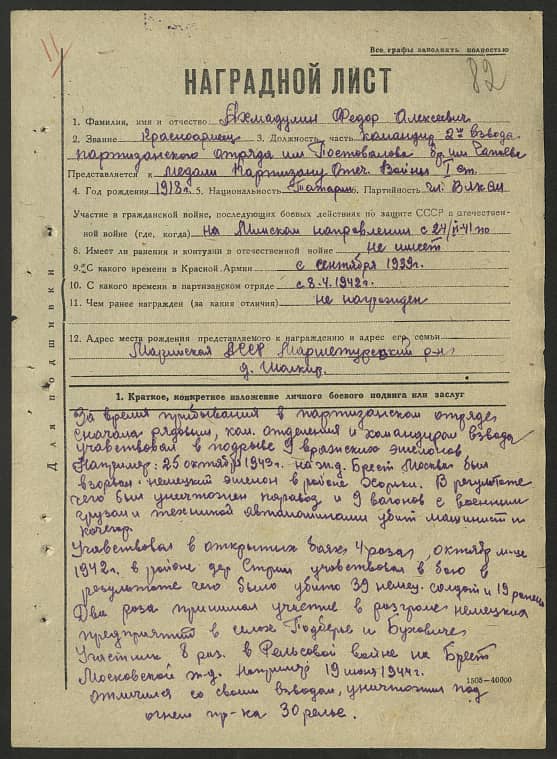 11
Все графы заполнять полностью
82
НАГРАДНОЙ ЛИСТ
1. Фамилия, имя и отчество Ахмадулин Федор Алексеевич
2. Звание Красноармеец 3. Должность, часть командир 2го взвода
партизанского отряда им Постовалова бр. им Чапаева
Представляется к медали Партизану Отеч. Войны I ст.
4. Год рождения 1918г. 5. Национальность Татарин 6. Партийность чл. ВЛКСМ
Участие в гражданской войне, последующих боевых действиях по защите СССР в отечествен-
ной войне (где, когда) на Минском направлении с 24/ 41 по
8. Имеет ли ранения и контузии в отечественной войне не имеет
9. С какого времени в Красной Армии с сентября 1939г.
10. С какого времени в партизанском отряде с 8.4.1942г.
11. Чем ранее награжден (за какие отличия) не награжден
12. Адрес места рождения представляемого к награждению и адрес его семьи
Марийская АССР р-н
д.
Для подшивки
1. Краткое, конкретное изложение личного боевого подвига или заслуг
За время прибывания в партизанском отряде
сначала рядовым, ком. отделения и командиром взвода
учавствовал в подрыве 9 вражских эшелонов
Например: 25 октября 1943г. на ж.д. Брест Москва был
взорван немецкий эшелон в районе В результате
чего был уничтожен паровоз и 9 вагонов с военным
грузом и техникой автомашинами убит машинист и
кочегар.
Учавствовал в открытых боях 4 роза, октябр м-це
1942г. в районе дер учавствовал в бою в
результате чего было убито 39 немец. солдат и 19 ранено
Два роза принимал участие в розгроме немецких
предприятий в селах и
Участник 8 раз. в Рельсовой войне на Брест
Московской ж-д. Например 19 июня 1944г.
отличился со своим взводом, уничтожил под
огнем пр-ка 30 рельс.
1508—40000